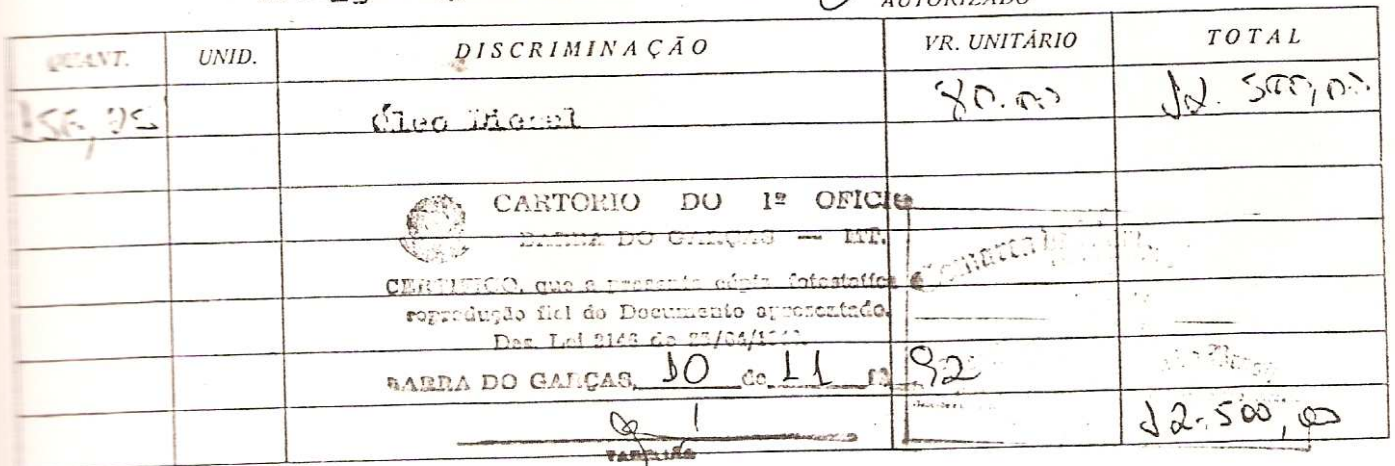 AUTORIZADO
QUANT. UNID. DISCRIMINAÇÃO VR. UNITÁRIO TOTAL
Óleo Diesel 80.00 12.500,00
CARTORIO DO 1º OFICIO
BARRA DO GARÇAS — MT.
CERTIFICO, que a presente cópia fotostatica é
reprodução fiel do Documento apresentado.
Dec. Lei 2148 de
BARRA DO GARÇAS, 10 de 11 92
Comarca
12.500,00
TABELIÃO